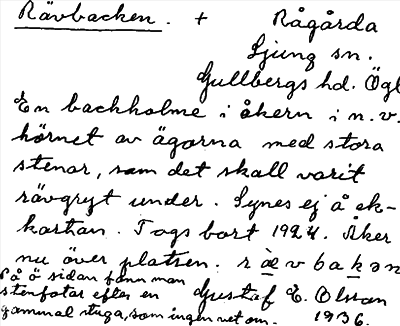 Rävbacken. + Rågårda
Ljung sn.
Gullbergs hd. Ögl
En backholme i åkern i n.v.
hörnet av ägorna med stora
stenar, som det skall varit
rävgryt under. Synes ej å ek-
kartan. Togs bort 1924. Åker
nu över platsen. r æ v b a k ə n
På ö sidan fann man
stenfotar efter en
gammal stuga, som ingen vet om.
Gustaf E. Olsson
1936.